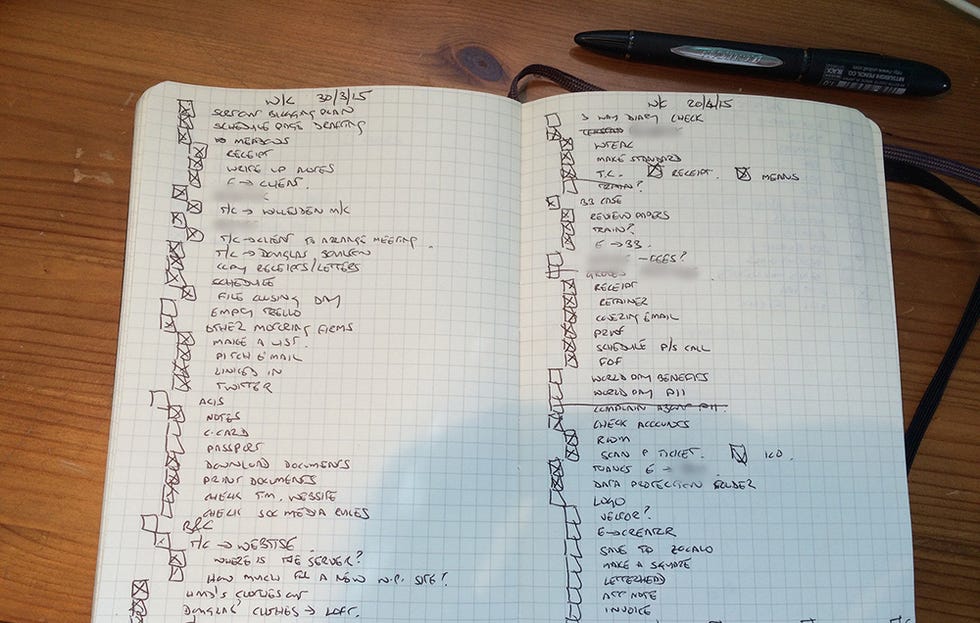 W/C 30/3/15
BLOGGING PLAN
SCHEDULE PAGE DRAFTING
MEADOWS
RECEIPT
WRITE UP NOTES
E → CLIENT.
T/C → WILLESDEN M/C
T/C → CLIENT TO ARRANGE MEETING.
T/C → DOUGLAS
COPY RECEIPTS/LETTERS
SCHEDULE
FILE CLOSING DAY
EMPTY TRELLO
OTHER MOTORING FIRMS
MAKE A LIST.
PITCH EMAIL
LINKED IN
TWITTER
NOTES
C.CARD
PASSPORT
DOWNLOAD DOCUMENTS
PRINT DOCUMENTS
CHECK T.M. WEBSITE
CHECK SOC MEDIA RULES
T/C → WEBTISE.
WHERE IS THE SERVER?
HOW MUCH FOR A NEW W.P. SITE?
CLOTHES OUT
DOUGLAS' CLOTHES → LOFT.
W/C 20/4/15
3 WAY DIARY CHECK
MAKE STANDARD
T.C. RECEIPT. MENUS
TRAIN?
BB CASE
REVIEW PAPERS
TRAIN?
E → BB.
- FEES?
RECEIPT
RETAINER
COVERING EMAIL
PRINT
SCHEDULE P/S CALL
FOF
WORLD DAY BENEFITS
WORLD DAY PII
COMPLAIN ABOUT PII.
CHECK ACCOUNTS
ROOM
SCAN P TICKET. ICO.
THANKS E →
DATA PROTECTION FOLDER
LOGO
VECTOR?
E → CREATER
SAVE TO ZOCALO
MAKE A SQUARE
LETTERHEAD
ATT NOTE
INVOICE
MITSUBISHI PENCIL CO.
BLACK
1.0